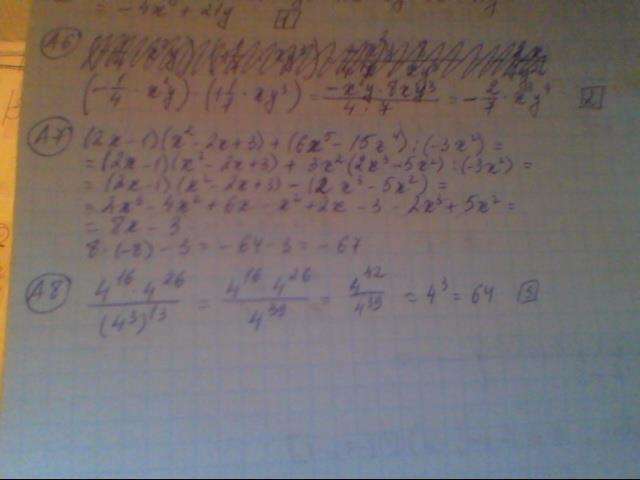 = -4x⁶ + 21y
1
A6
(-1/4 · x²y) · (1 1/7 · xy³) = -x²y·8xy³/4·7 = -2/7 · x³y⁴ 2
A7 (2x-1)(x²-2x+3) + (6x⁵-15x⁴) : (-3x²) =
= (2x-1)(x²-2x+3) + 3x²(2x³-5x²) : (-3x²) =
= (2x-1)(x²-2x+3) - (2x³-5x²) =
= 2x³ - 4x² + 6x - x² + 2x - 3 - 2x³ + 5x² =
= 8x - 3
8·(-8) - 3 = -64 - 3 = -67
A8 4¹⁶·4²⁶/(4³)¹³ = 4¹⁶·4²⁶/4³⁹ = 4⁴²/4³⁹ = 4³ = 64 3